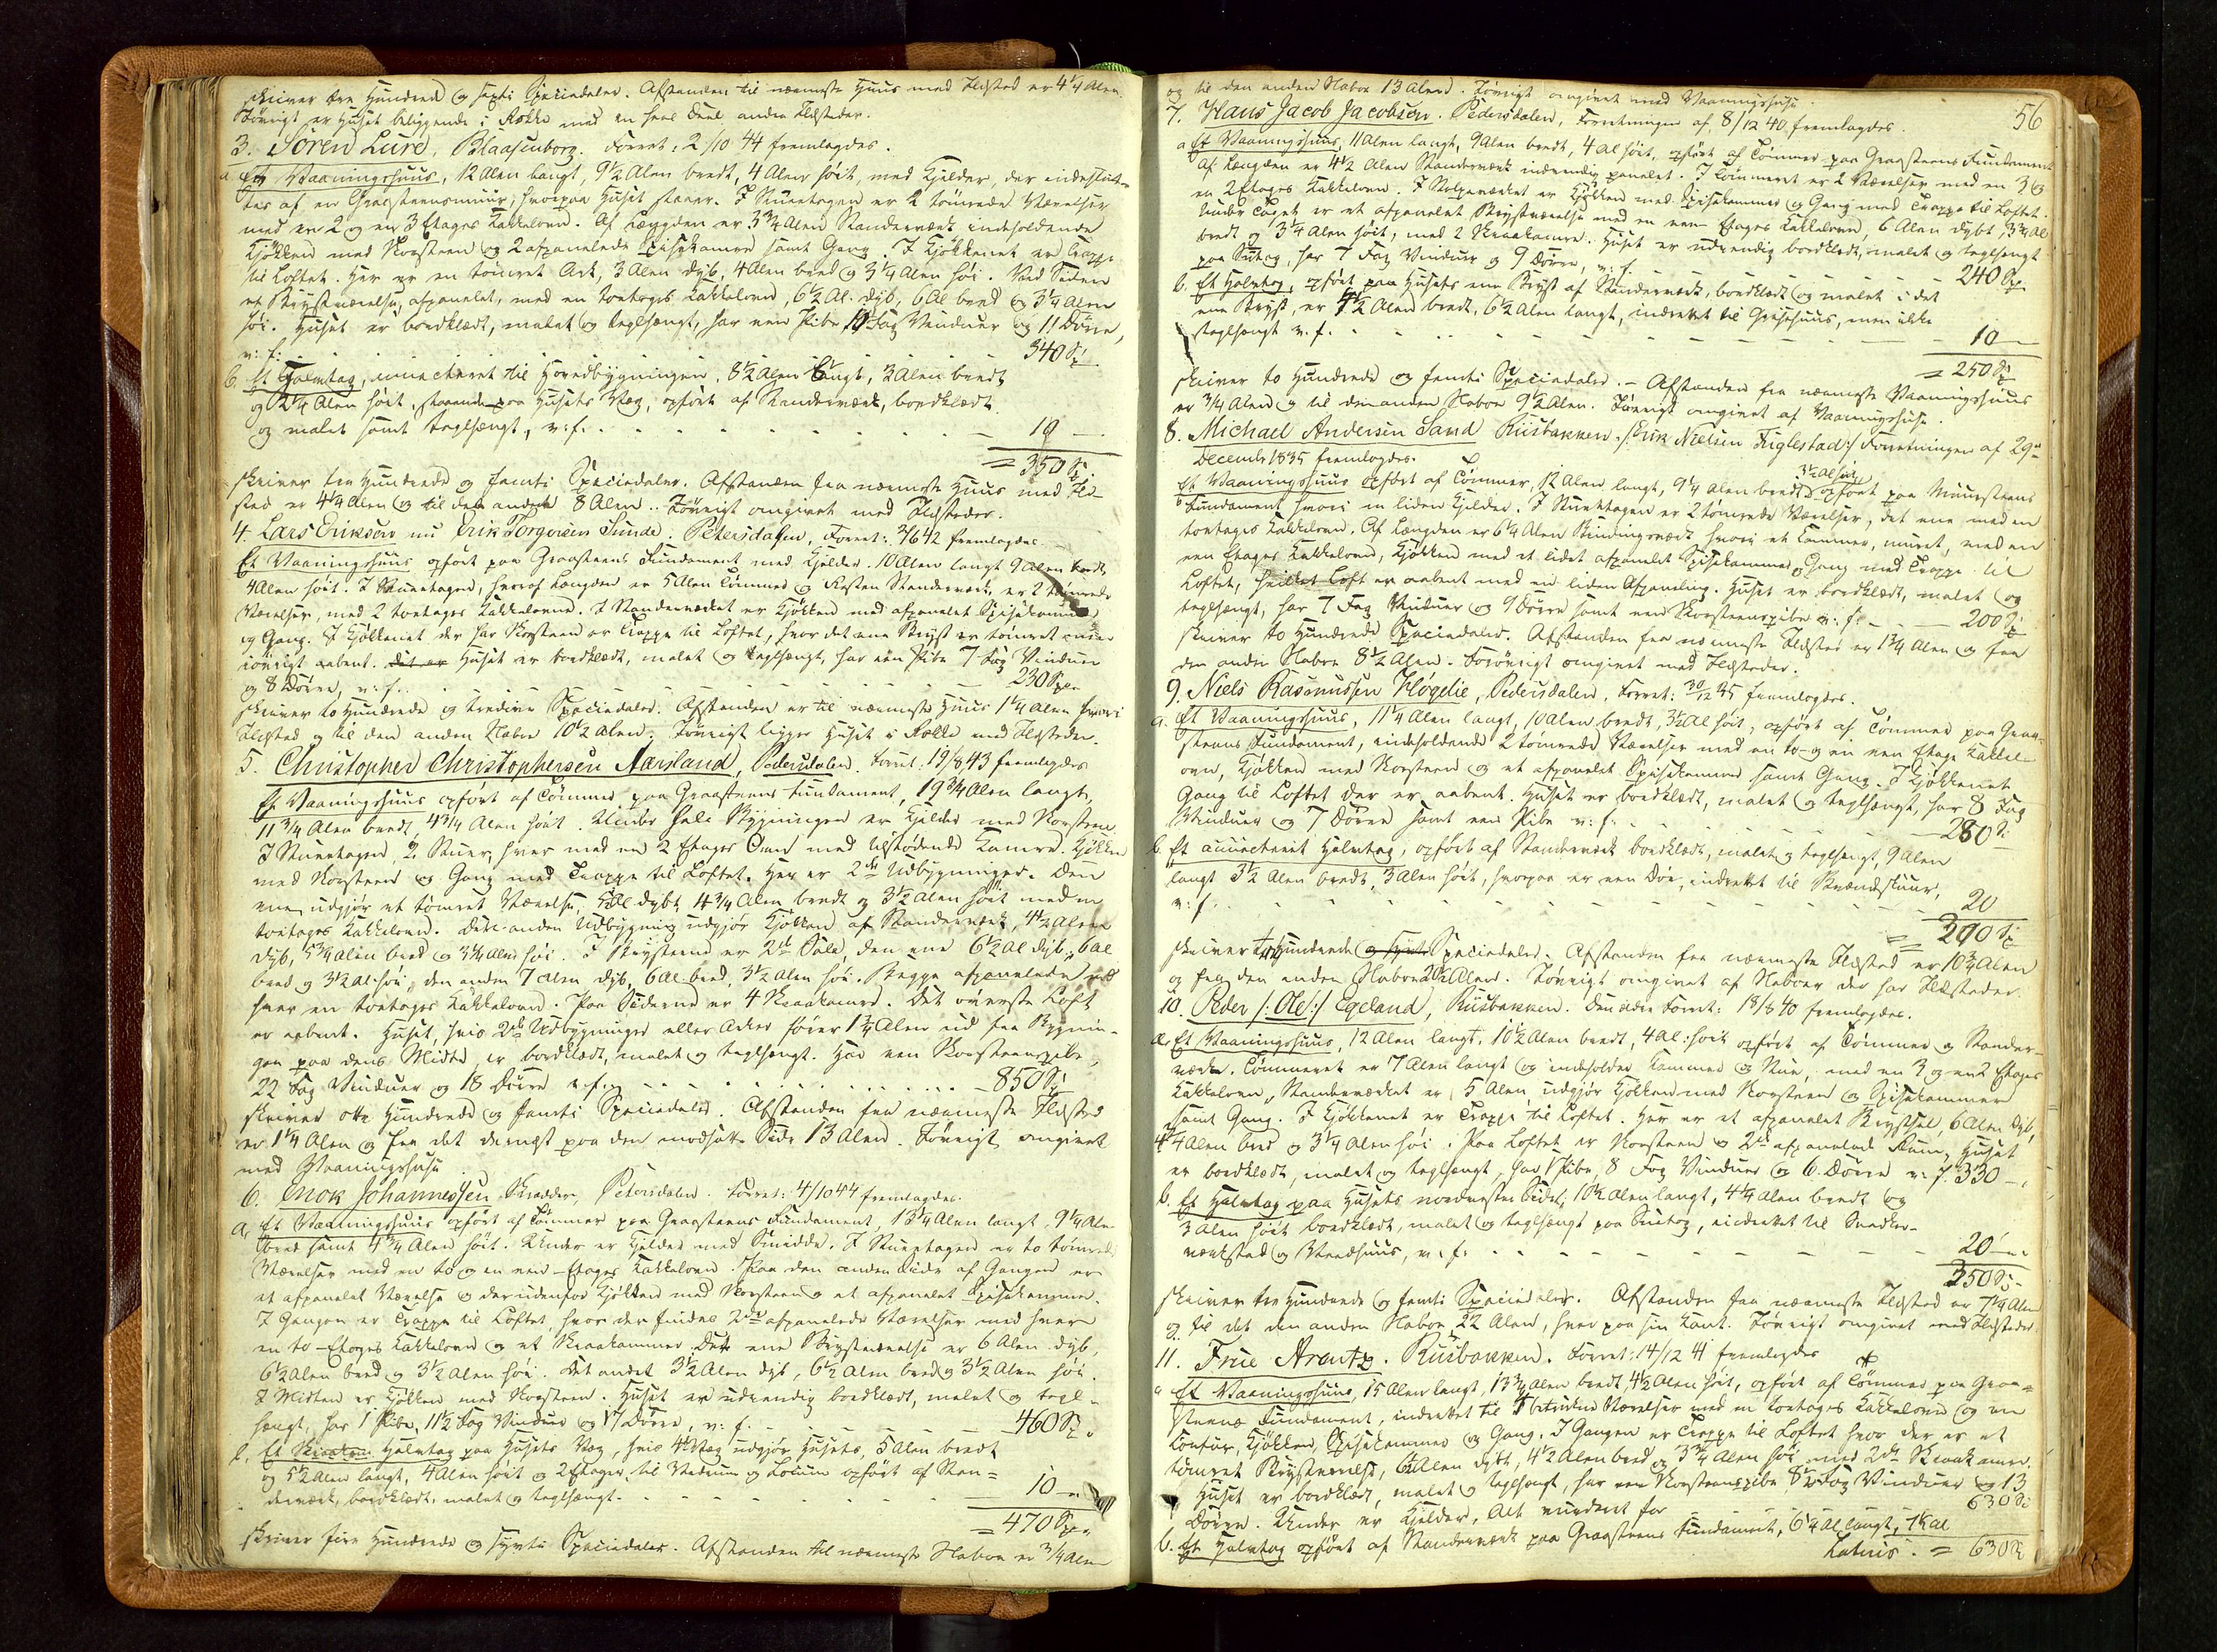 skriver tre Hundrede og sexti Speciedaler. Afstanden til nærmeste Huus med Ildsted er 4 1/4 Alen.
Iøvrigt er Huset beliggende i Række med en heel Deel andre Ildsteder.
3. Sören Lure, Blaasenborg. Forret: 2/10 44 fremlagdes.
a Et Vaaningshuus, 12 Alen langt, 9 1/2 Alen bredt, 4 Alen høit, med Kjelder, der indeslut-
tes af en Graasteensmuur, hvorpaa Huset staaer. I Stueetagen er 2 tømrede Værelser
med en 2 og en 3 Etages Kakkelovn. Af Længden er 3 3/4 Alen Standerværk indeholdende
Kjøkken med Skorsteen og 2 afpanelede Spisekamre samt Gang. I Kjøkkenet er Trappe
til Loftet. Her er en tømret Ark, 3 Alen dyb, 4 Alen bred og 3 1/4 Alen høi. Ved Siden
et Brystværelse, afpanelet, med en toetages Kakkelovn, 6 1/2 Al. dyb, 6 Al bred og 3 1/4 Alen
høi. Huset er bordklædt, malet og teglhængt, har een Pibe 10 Fag Vinduer og 11 Dørre,
v: f. 340 Sp
b. Et Halvtag, annecteret til Hovedbygningen, 8 1/2 Alen langt, 3 Alen bredt
og 2 1/4 Alen høit, staaende paa Husets Væg, opført af Standerværk, bordklædt
og malet samt teglhængt, v: f. 10 —
= 350 Sp
skriver tre Hundrede og femti Speciedaler. Afstanden fra nærmeste Huus med Ild-
sted er 4 1/4 Alen og til den anden 8 Alen. Iøvrigt omgivet med Ildsteder.
4. Lars Eriksen nu Erik Torgersen Sunde. Petersdalen, Forret: 3/6 42 fremlagdes.
Et Vaaningshuus opført paa Graasteens Fundament med Kjelder. 10 Alen langt 9 Alen bredt,
4 Alen høit. I Stueetagen, hvoraf Længden er 5 Alen Tømmer og Resten Standerværk, er 2 tømrede
Værelser, med 2 toetages Kakkelovne. I Standerværket er Kjøkken med afpanelet Spisekammer
og Gang. I Kjøkkenet der har Skorsteen er Trappe til Loftet, hvor det ene Bryst er tømret
iøvrigt aabent. Huset er bordklædt, malet og teglhængt, har een Pibe 7 Fag Vinduer
og 8 Dørre, v: f. 230 Sp
skriver to Hundrede og tredive Speciedaler. Afstanden er til nærmeste Huus 1 1/4 Alen hvori
Ildsted og til den anden Nabo 10 1/2 Alen. Iøvrigt ligger Huset i Række med Ildsteder.
5. Christopher Christophersen Aarsland, Pedersdalen. Forret: 19/8 43 fremlagdes
Et Vaaningshuus opført af Tømmer paa Graasteens Fundament, 19 3/4 Alen langt,
11 3/4 Alen bredt, 4 3/4 Alen høit. Under hele Bygningen er Kjelder med Skorsteen
I Stueetagen, 2 Stuer, hver med en 2 Etages Ovn med tilstødende Kamre. Kjøkken
med Skorsteen og Gang med Trappe til Loftet. Her er 2de Udbygninger. Den
ene udgjør et tømret Værelse, 5 Al. dybt, 4 3/4 Alen bredt og 3 1/2 Alen høit med en
toetages Kakkelovn. Den anden Udbygning udgjør Kjøkken af Standerværk, 4 1/2 Alen
dyb, 5 3/4 Alen bred og 3 1/4 Alen høi. I Brystene er 2de Sale, den ene 6 1/2 Al dyb, 6 Al
bred og 3 1/2 Al. høi, den anden 7 Alen dyb, 6 Al. bred, 3 1/2 Alen høi. Begge afpanelede med
hver en toetages Kakkelovn. Paa Siderne er 4 Kraakamre. Det øverste Loft
er aabent. Huset, hvis 2de Udbygninger eller Arker staaer 1 3/4 Alen ud fra Bygnin-
gen paa dens Midte, er bordklædt, malet og teglhængt. Har een Skorsteenspibe,
22 Fag Vinduer og 18 Dørre v. f. 850 Sp
skriver otte Hundrede og femti Speciedaler. Afstanden fra nærmeste Ildsted
er 1 1/4 Alen og fra det dernæst paa den modsatte Side 13 Alen. Iøvrigt omgivet
med Vaaningshuse
6. Enok Johannessen Skrædder, Petersdalen. Forret: 4/10 44 fremlagdes.
a, Et Vaaningshuus opført af Tømmer paa Graasteens Fundament, 13 1/4 Alen langt, 9 1/4 Alen
bred samt 4 3/4 Alen høit. Under er Kjelder med Smedde. I Stueetagen er to tømrede
Værelser med en to og en een-Etages Kakkelovn. Paa den anden Side af Gangen er
et afpanelet Værelse og derudenfor Kjøkken med Skorsteen og et afpanelet Spisekammer.
I Gangen er Trappe til Loftet, hvor der findes 2de afpanelede Værelser med hver
en to-Etages Kakkelovn og et Kraakammer. Det ene Brystværelse er 6 Alen dyb,
6 1/2 Alen bred og 3 1/2 Alen høi. Det andet 3 1/2 Alen dyb, 6 1/2 Alen bred og 3 1/2 Alen høi.
I Midten er Kjøkken med Skorsteen. Huset er udvendig bordklædt, malet og tegl-
hængt, har 1 Pibe, 11 1/2 Fag Vinduer og 17 Dørre, v: f. 460 Sp.
b. Et Halvtag paa Husets Væg, hvis 4de Væg udgjør Husets, 5 Alen bredt
og 5 1/2 Alen langt, 4 Alen høit og 2 Etager til Vedrum og Locum opført af Stan=
derværk, bordklædt, malet og teglhængt. 10 —
= 470 Sp
skriver fire Hundrede og sytti Speciedaler. Afstanden til nærmeste Naboe er 3/4 Alen
56
og til den anden Naboe 13 Alen. Iøvrigt omgivet med Vaaningshuse.
7. Hans Jacob Jacobsen. Pedersdalen, Forretningen af 8/12 40 fremlagdes.
a Et Vaaningshuus, 11 Alen langt, 9 Alen bredt, 4 Al høit, opført af Tømmer paa Graasteens Fundament
af Længden er 4 1/2 Alen Standerværk indvendig panelet. I Tømmeret er 2 Værelser med en 3 og
en 2 Etages Kakkelovn. I Stolpeværket er Kjøkken med Spisekammer og Gang med Trappe til Loftet.
Under Taget er et afpanelet Brystværelse med en een Etages Kakkelovn, 6 Alen dybt, 3 3/4 Al
bredt og 3 1/4 Alen høit, med 2 Kraakamre. Huset er udvendig bordklædt, malet og teglhængt
paa Sutag, har 7 Fag Vinduer og 9 Dørre, v: f. 240 Sp
b. Et Halvtag, opført paa Husets ene Bryst af Standerværk, bordklædt og malet i det
ene Bryst, er 4 1/2 Alen bredt, 6 1/2 Alen langt, indrettet til Grisehuus, men ikke
teglhængt v. f. 10 —
= 250 Sp
skriver to Hundrede og femti Speciedaler. — Afstanden fra nærmeste Vaaningshuus
er 3/4 Alen og til den anden Naboe 9 1/2 Alen. Iøvrigt omgivet af Vaaningshuse.
8. Michael Andersen Sand Riisbakken. /: Erik Nielsen Tiglestad :/ Forretningen af 29de
December 1835 fremlagdes.
3 1/2 Al høit
Et Vaaningshuus opført af Tømmer, 12 Alen langt, 9 1/4 Alen bredt, opført paa Muursteens
Fundament hvori en liden Kjelder. I Stueetagen er 2 tømrede Værelser, det ene med en
toetages Kakkelovn. Af Længden er 6 1/4 Alen Bindingsværk hvori et Kammer, muret, med en
een Etages Kakkelovn, Kjøkken med et lidet afpanelet Spisekammer, Gang med Trappe til
Loftet, hvilket Loft er aabent med en liden Afpaneling. Huset er bordklædt, malet og
teglhængt, har 7 Fag Vinduer og 9 Dørre samt een Skorsteenspibe v: f. 200 Sp
skriver to Hundrede Speciedaler. Afstanden fra nærmeste Ildsted er 1 3/4 Alen og fra
den anden Naboe 8 1/2 Alen. Forøvrigt omgivet med Ildsteder.
9. Niels Rasmussen Høgelie, Pedersdalen. Forret: 30/12 45 fremlagdes.
a. Et Vaaningshuus, 11 1/4 Alen langt, 10 Alen bredt, 3 1/2 Al høit, opført af Tømmer paa Graa-
steens Fundament, indeholdende 2 tømrede Værelser med en to- og en een Etage Kakkel-
ovn, Kjøkken med Skorsteen og et afpanelet Spisekammer samt Gang. I Kjøkkenet
Gang til Loftet der er aabent. Huset er bordklædt, malet og teglhængt, har 8 Fag
Vinduer og 7 Dørre samt een Pibe v: f. 280 Sp
b. Et annecteret Halvtag, opført af Standerværk bordklædt, malet og teglhængt, 9 Alen
langt 3 1/2 Alen bredt, 3 Alen høit, hvorpaa er een Dør, indrettet til Brændeskuur,
v: f. 20
= 290 Sp
skriver to Hundrede Speciedaler. Afstanden fra nærmeste Ildsted er 10 3/4 Alen
og fra den anden Naboe 20 1/2 Alen. Iøvrigt omgivet af Naboer der har Ildsteder.
10. Peder /: Ole :/ Egeland, Riisbakken. Den ældre Forret: 18/8 40 fremlagdes.
a. Et Vaaningshuus, 12 Alen langt, 10 1/2 Alen bredt, 4 Al: høit opført af Tømmer og Stander-
værk. Tømmeret er 7 Alen langt og indeholder Kammer og Stue, med en 3 og en 2 Etages
Kakkelovn, Standerværket er 5 Alen, udgjør Kjøkken med Skorsteen og Spisekammer
samt Gang. I Kjøkkenet er Trappe til Loftet. Her er et afpanelet Brystsal, 6 Alen dyb,
4 1/4 Alen bred og 3 1/4 Alen høi. Paa Loftet er Skorsteen og 2de afpanelede Rum, Huset
er bordklædt, malet og teglhængt, har 1 Pibe, 8 Fag Vinduer og 6 Dørre v. f. 330 —
b. Et Halvtag paa Husets nordvestre Side, 10 1/2 Alen langt, 4 1/4 Alen bredt og
3 Alen høit bordklædt, malet og teglhængt paa Sutag, indrettet til Snedker-
værksted og Vaadhuus, v: f. 20 —
350 Sp
skriver tre Hundrede og femti Speciedaler. Afstanden fra nærmeste Ildsted er 7 1/4 Alen
og til det den anden Naboe 22 Alen, hver paa sin Kant. Iøvrigt omgivet med Ildsteder.
11. Frue Arentz. Riisbakken. Forret: 14/12 41 fremlagdes
a Et Vaaningshuus, 15 Alen langt, 13 3/4 Alen bredt, 4 1/2 Alen høit, opført af Tømmer paa Graa=
steens Fundament, indrettet til Værelser med en toetages Kakkelovn og en
Contur, Kjøkken, Spisekammer og Gang. I Gangen er Trappe til Loftet hvor der er et
tømret Brystværelse, 6 1/2 Alen dybt, 4 1/2 Alen bred og 3 3/4 Alen høi med 2de Kraakamre.
Huset er bordklædt, malet og teglhængt, har een Skorsteenspibe, Fag Vinduer og 13
Dørre. Under er Kjelder. Alt vurderet for 630 Sp
b. Et Halvtag opført af Standerværk paa Graasteens Fundament, 6 1/4 Al langt,
Lateris. = 630 Sp